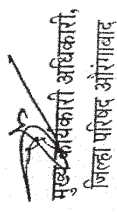 मुख्य कार्यकारी अधिकारी,
जिल्हा परिषद औरंगाबाद